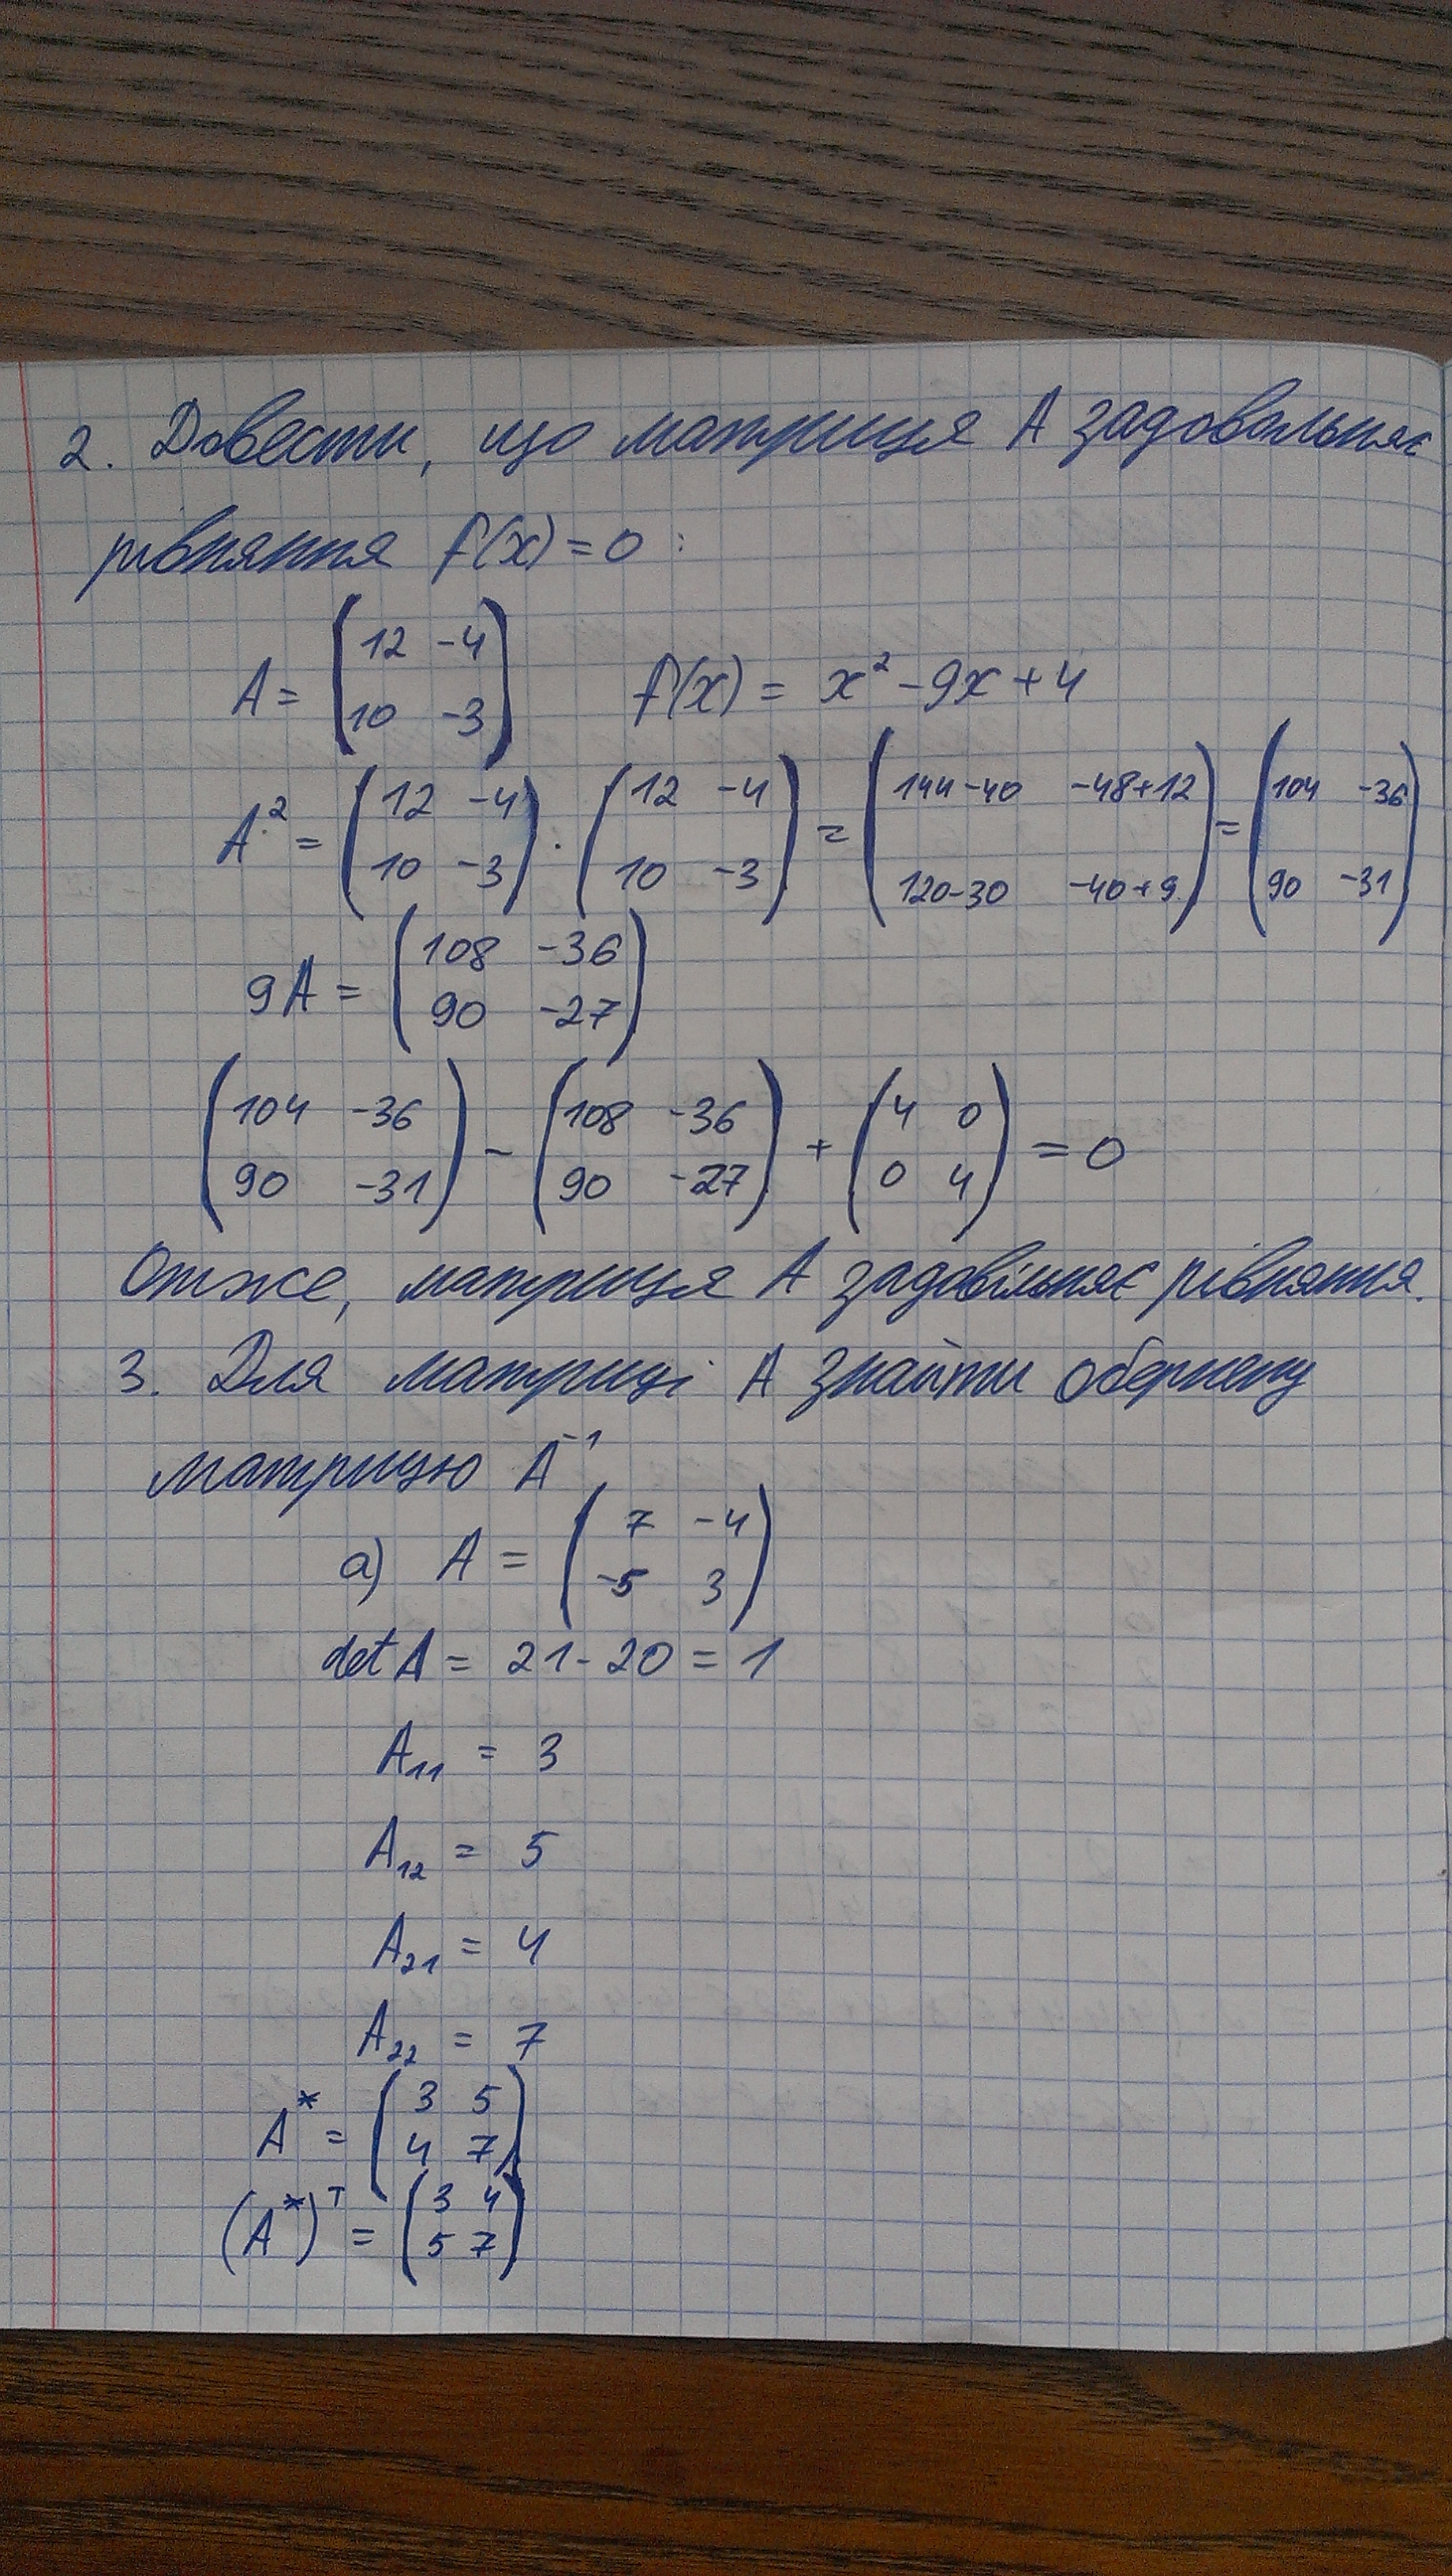 2. Довести, що матриця А задовольняє
рівняння f(x) = 0 :
A = (12 -4; 10 -3) f(x) = x² - 9x + 4
A² = (12 -4; 10 -3) · (12 -4; 10 -3) = (144-40 -48+12; 120-30 -40+9) = (104 -36; 90 -31)
9A = (108 -36; 90 -27)
(104 -36; 90 -31) - (108 -36; 90 -27) + (4 0; 0 4) = 0
Отже, матриця А задовільняє рівняння.
3. Для матриці А знайти обернену
матрицю A⁻¹
а) A = (7 -4; -5 3)
det A = 21 - 20 = 1
A₁₁ = 3
A₁₂ = 5
A₂₁ = 4
A₂₂ = 7
A* = (3 5; 4 7)
(A*)ᵀ = (3 4; 5 7)